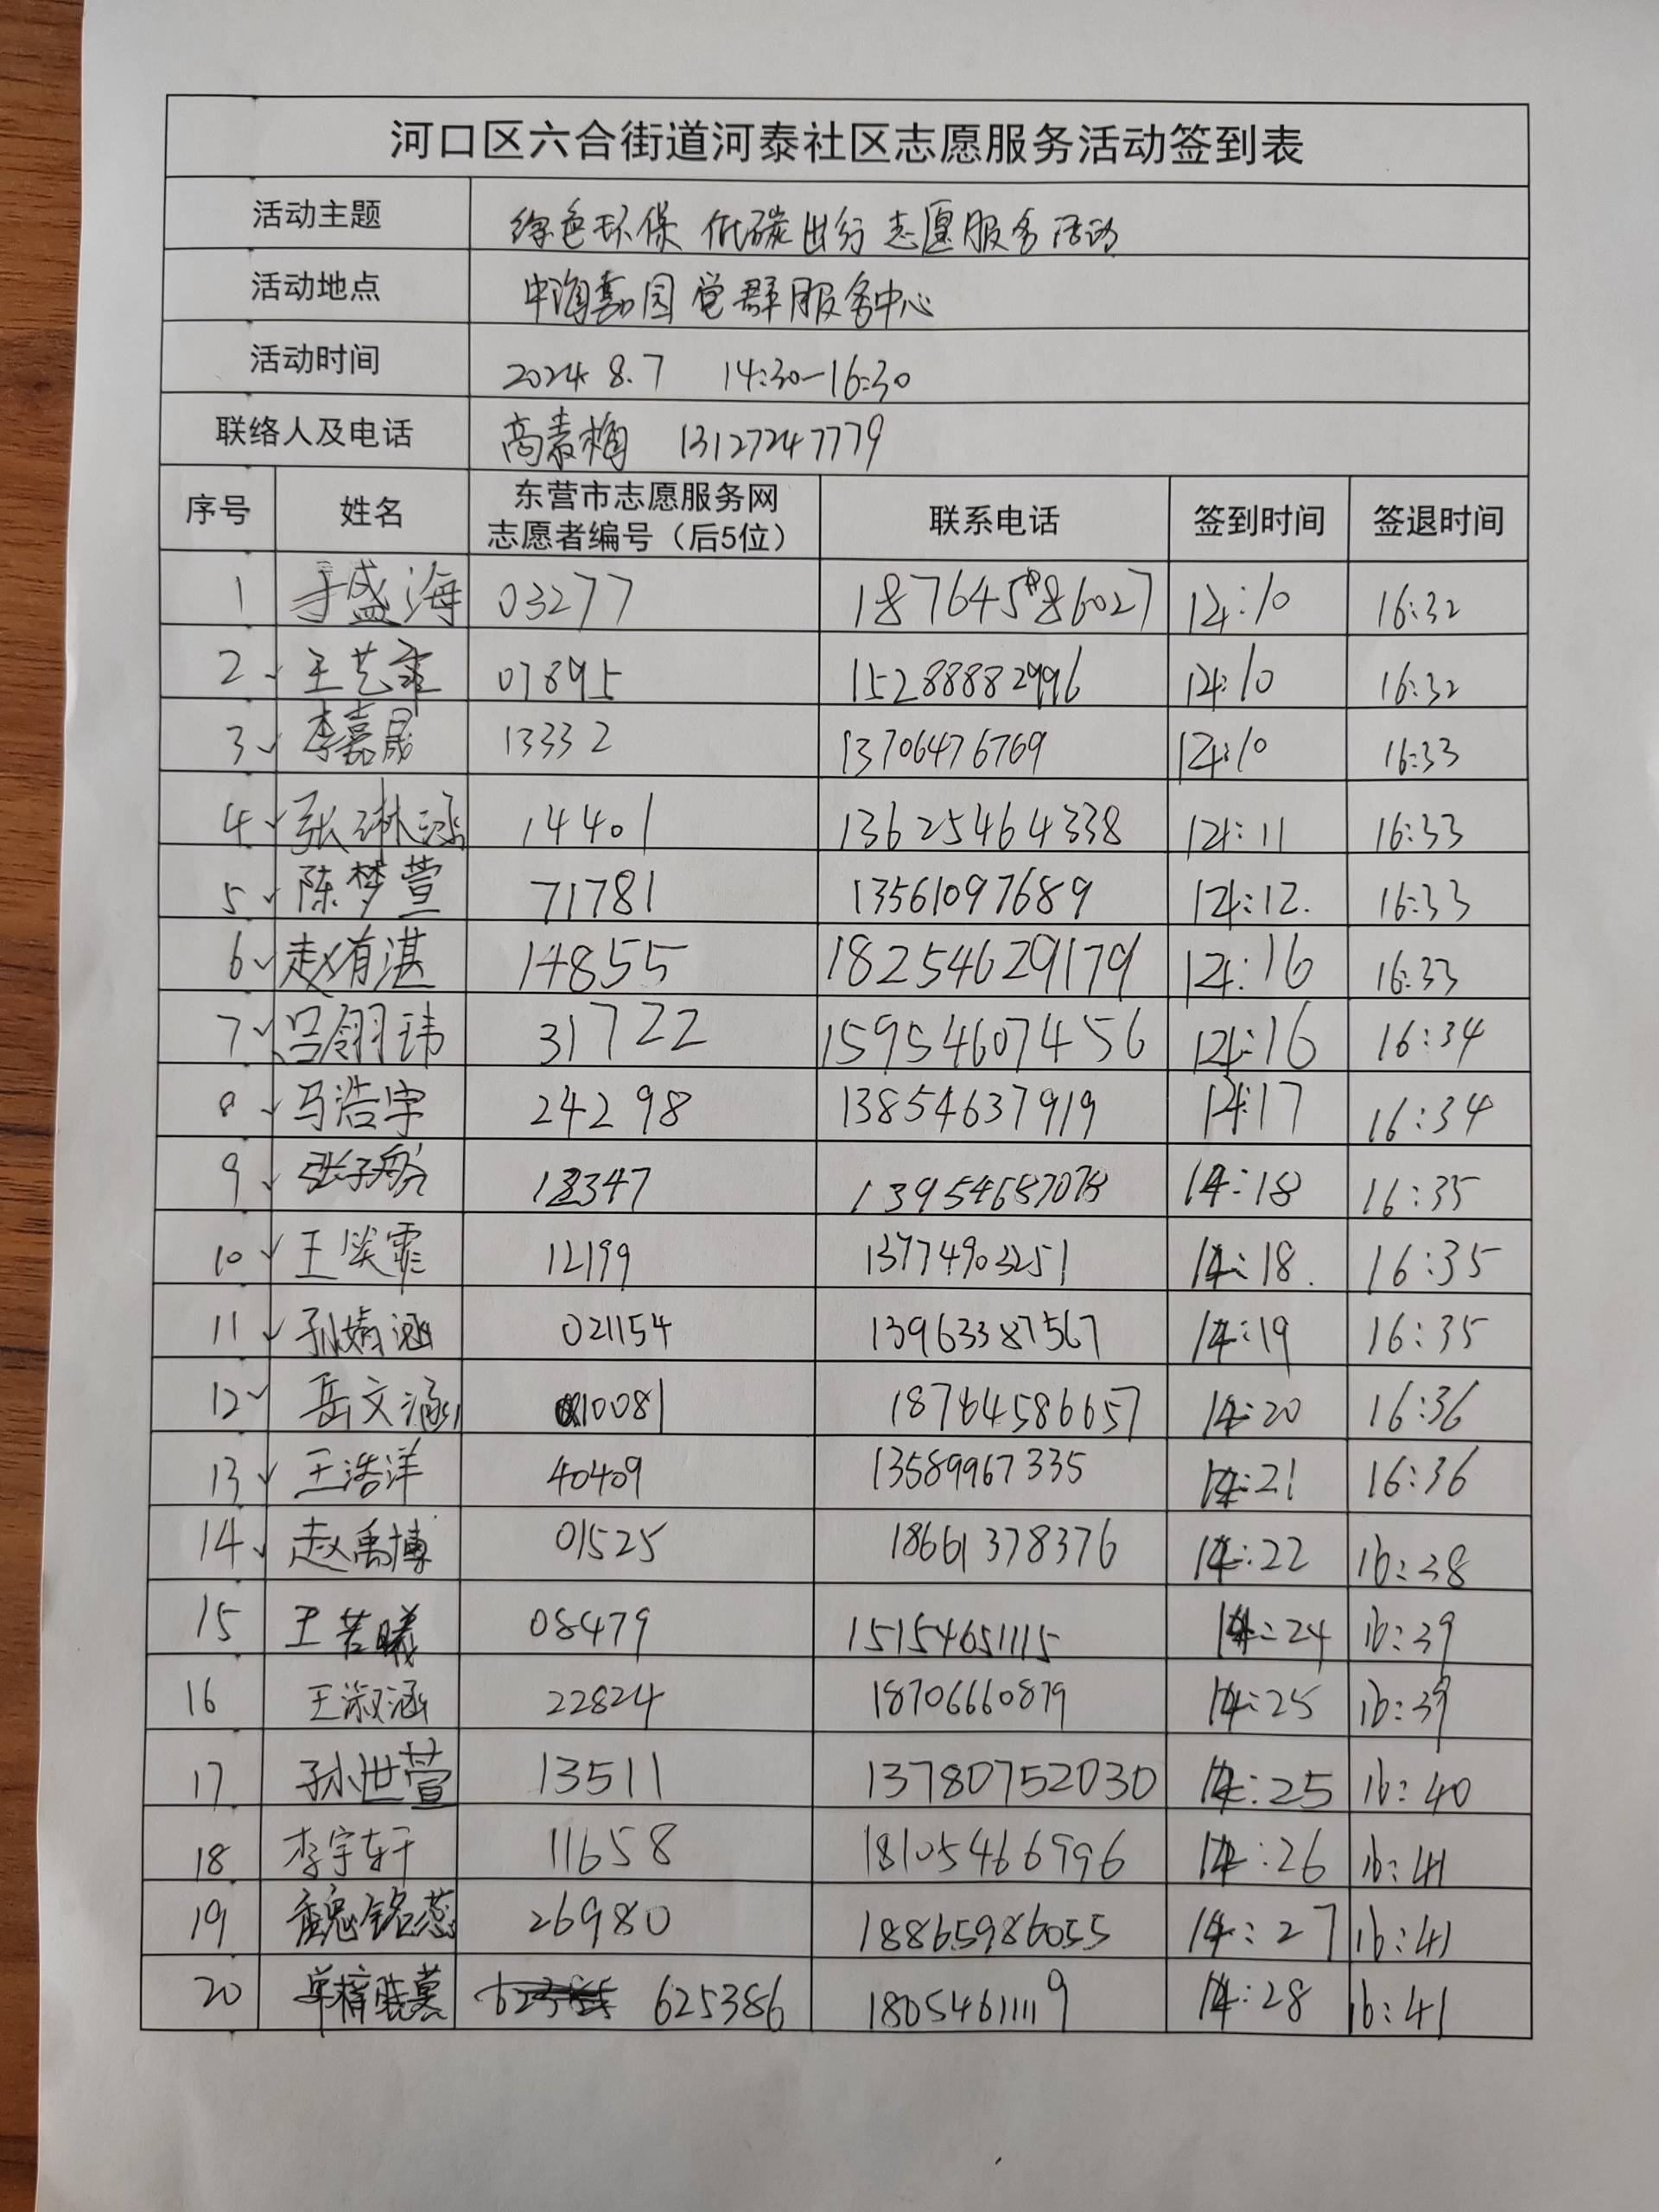 河口区六合街道河泰社区志愿服务活动签到表
活动主题 绿色环保 低碳出行 志愿服务活动
活动地点 中海嘉园党群服务中心
活动时间 2024.8.7 14:30-16:30
联络人及电话 高素梅 13127247779
序号 姓名 东营市志愿服务网 志愿者编号（后5位） 联系电话 签到时间 签退时间
1 于盛海 03277 18764586027 14:10 16:32
2 王艺霏 07895 15288882996 14:10 16:32
3 李嘉晟 13332 13706476769 14:10 16:33
4 张琳涵 14401 13625464338 14:11 16:33
5 陈梦萱 71781 13561097689 14:12. 16:33
6 赵有湛 14855 18254629179 14:16 16:33
7 吕翎玮 31722 15954607456 14:16 16:34
8 马浩宇 24298 13854637919 14:17 16:34
9 张子 12347 13954687078 14:18 16:35
10 王 霏 12199 13774903251 14:18. 16:35
11 孙婧涵 021154 13963387567 14:19 16:35
12 岳文涵 10081 18764586657 14:20 16:36
13 王浩洋 40409 13589967335 14:21 16:36
14 赵禹博 01525 18661378376 14:22 16:38
15 王若曦 08479 15154651115 14:24 16:39
16 王淑涵 22824 18706660879 14:25 16:39
17 孙世萱 13511 13780752030 14:25 16:40
18 李宇轩 11658 18105466996 14:26 16:41
19 魏铭蕊 26980 18865986055 14:27 16:41
20 625386 18054611119 14:28 16:41